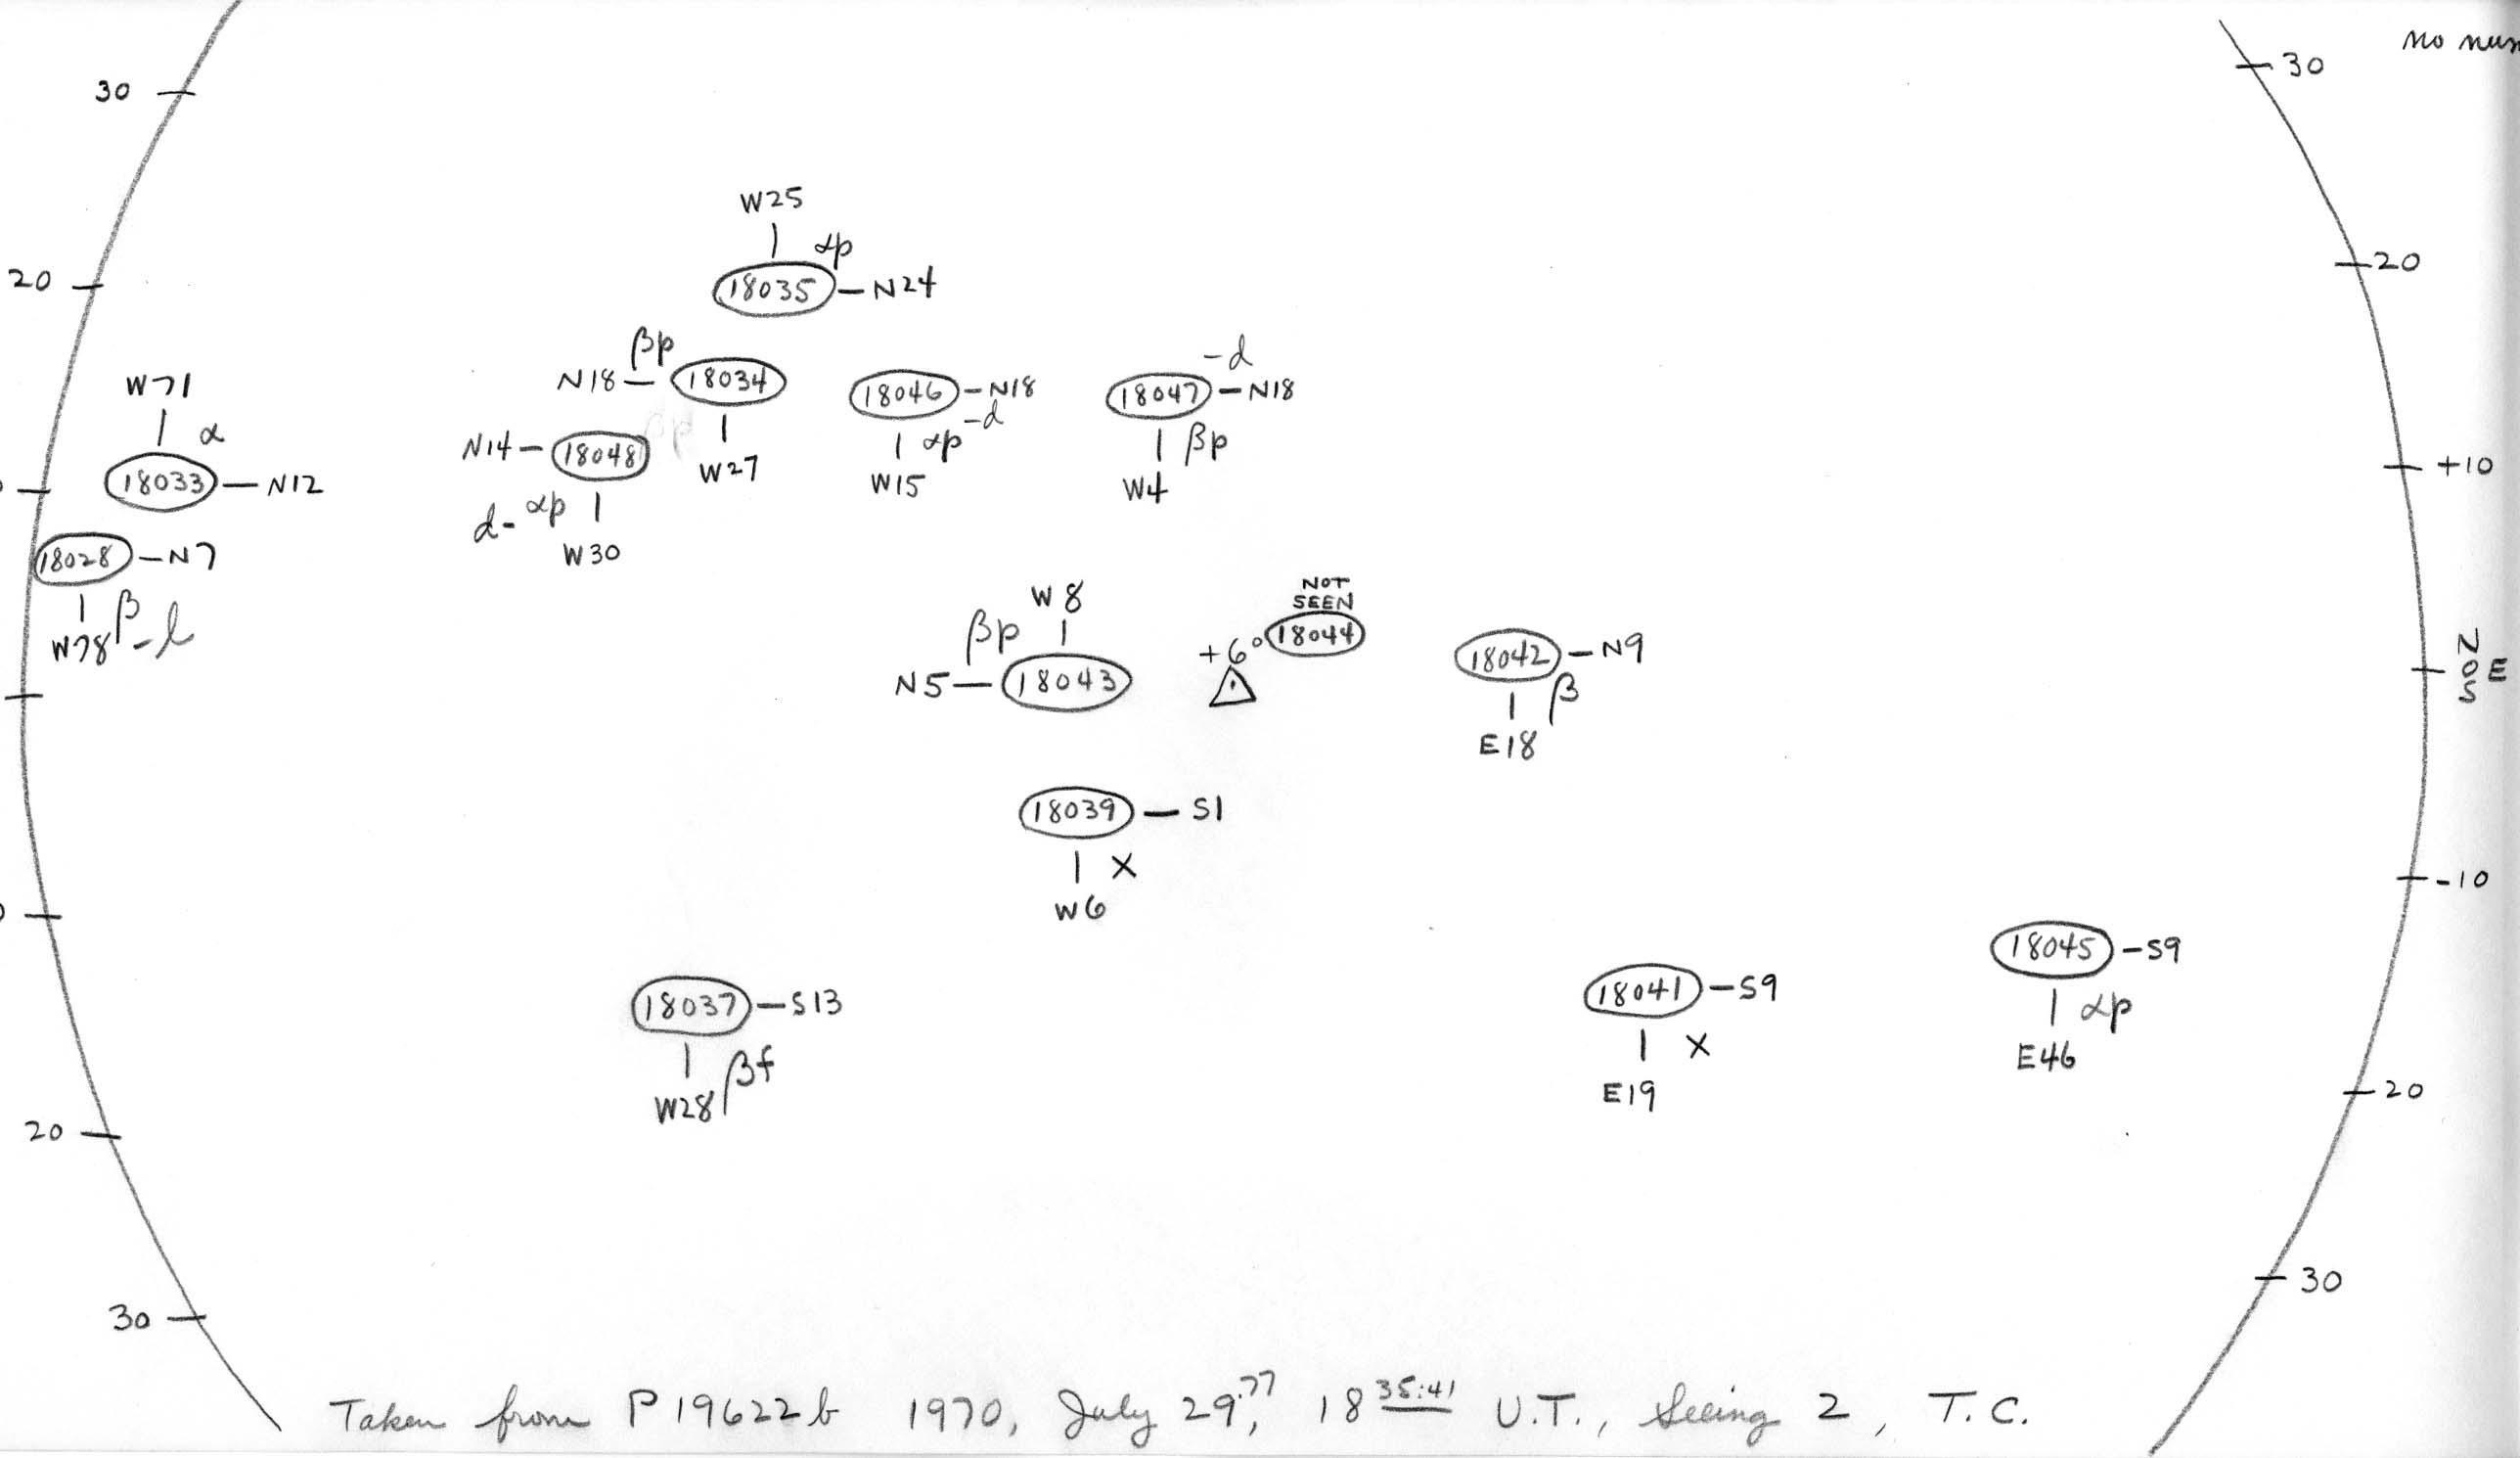 30
30
no
W25
αp
18035 - N24
20
20
βp
N18 - 18034
W27
18046 - N18
αp -d
W15
-d
18047 - N18
βp
W4
W71
α
18033 - N12
N14 - 18048
d- αp
W30
+10
18028 - N7
β -l
W78
W8
βp
N5 - 18043
NOT
SEEN
18044
+6°
18042 - N9
β
E18
N
0 E
S
18039 - S1
X
W6
-10
18045 - S9
αp
E46
18037 - S13
βf
W28
18041 - S9
X
E19
20
20
30
30
Taken from P19622b 1970, July 29.77, 18 35:41 U.T., Seeing 2, T.C.